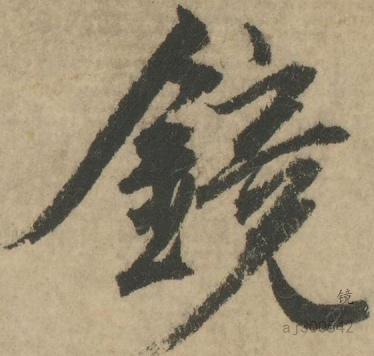 鏡
镜
aj300542